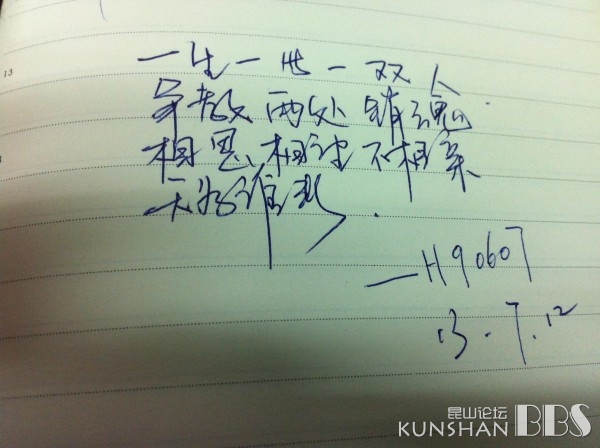 13
一生一世一双人
争教两处销魂
相思相望不相亲
天为谁春.
—H90607
13.7.12
昆山论坛
KUNSHAN BBS